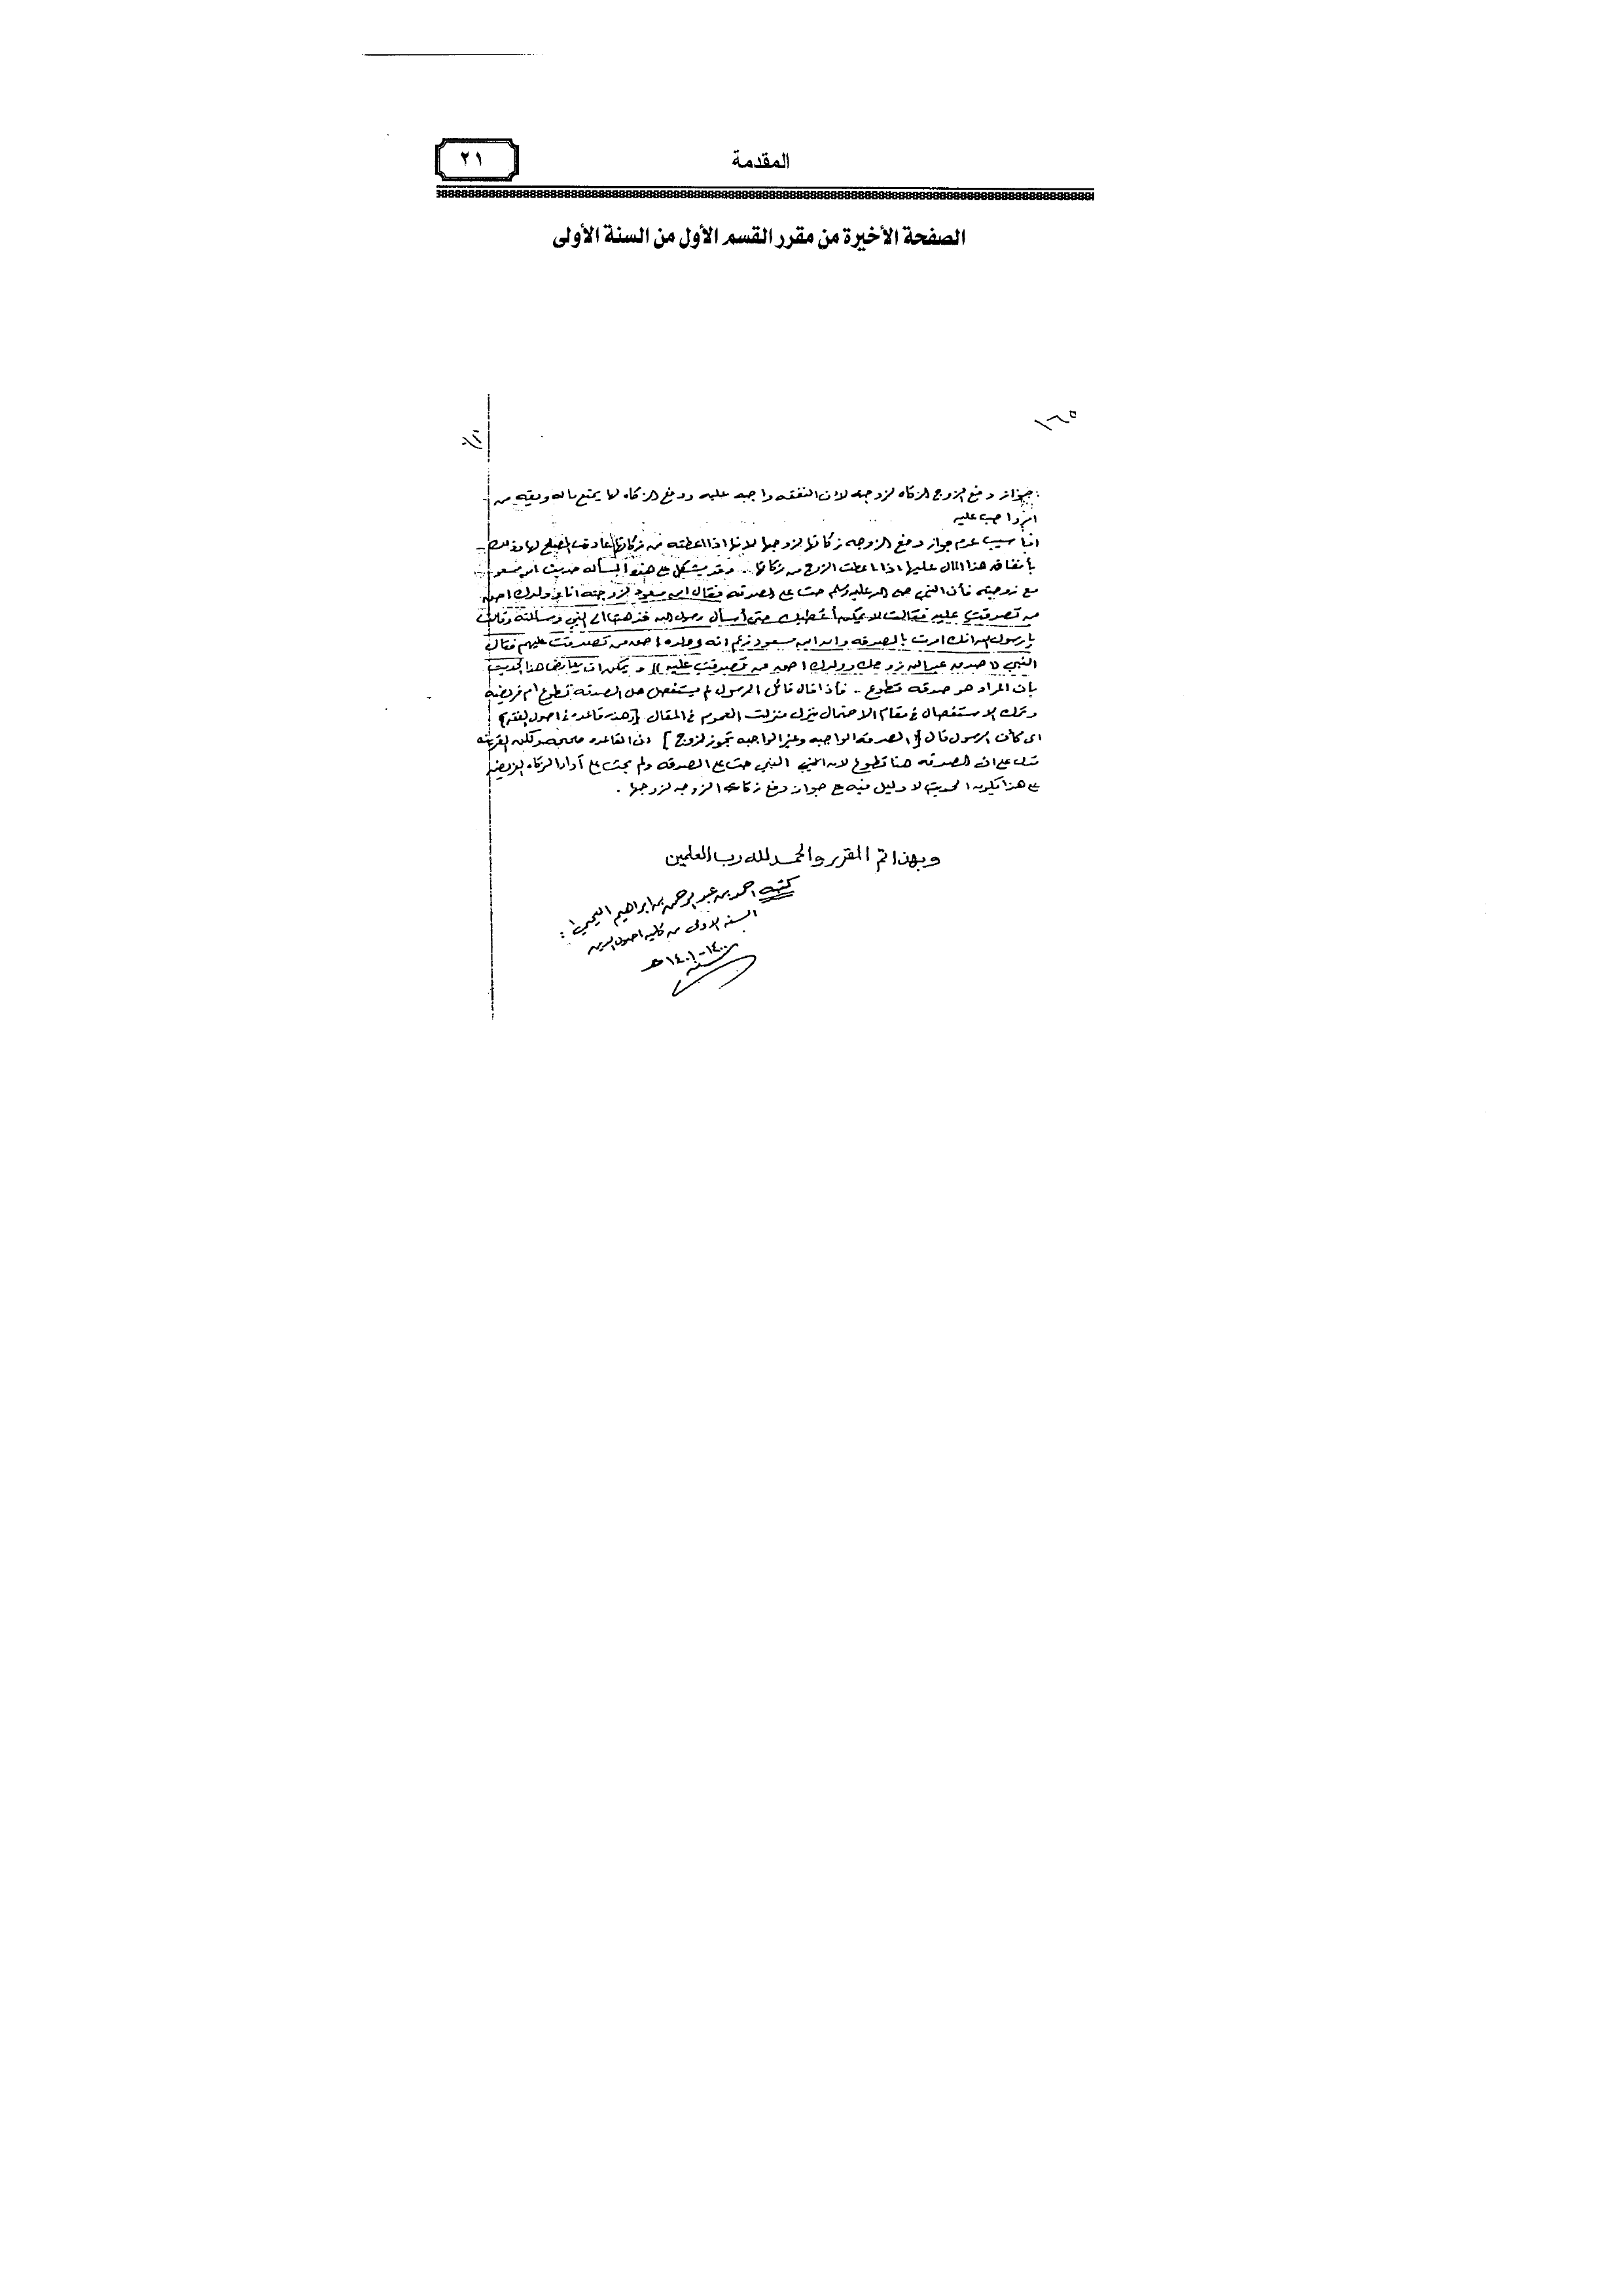 المقدمة
٢١
الصفحة الأخيرة من مقرر القسم الأول من السنة الأولى
١٦٥
جواز دفع الزوج الزكاه لزوجته لان النفقه واجبه عليه ودفع الزكاه لها يمتع ماله ويقيه من
امر واجب عليه
اما سبب عدم جواز دفع الزوجه زكاتها لزوجها لانها اذا اعطته من زكاتها عادت المصلح لها وذلك
بأنفاقه هذا المال عليها اذا اعطت الزوج من زكاتها .. وقد يشكل على هذه المسأله حديث ابن مسعود
مع زوجته فأن النبي صلى الله عليه وسلم حث على الصدقه فقال ابن مسعود لزوجته انا وولدك احق
من تصدقت عليه فقالت لا يمكن أعطيك حتى أسأل رسول الله فذهبت الى النبي وسألته وقالت
يا رسول الله انك امرت بالصدقه وان ابن مسعود زعم انه وولده احق من تصدقت عليهم فقال
النبي (( صدق عبد الله زوجك وولدك احق من تصدقت عليه )) و يمكن ان يعارض هذا الحديث
بأن المراد هو صدقه تطوع - فأذا قال قائل الرسول لم يستفصل هل الصدقه تطوع ام فريضه
وترك الاستفصال في مقام الاحتمال ينزل منزلت العموم في المقال [وهذه قاعده في اصول الفقه]
اى كأن الرسول قال [الصدقه الواجبه وغير الواجبه تجوز لزوج] ان القاعده صحيحه ولكن القرينه
تدل على ان الصدقه هنا تطوع لان النبي حث على الصدقه ولم يحث على أداء الزكاه الفريضه
على هذا يكون الحديث لا دليل فيه على جواز دفع زكاة الزوجه لزوجها .
وبهذا تم المقرر والحمد لله رب العلمين
كتبه احمد بن عبد الرحمن بن ابراهيم
السنه الاولى من كليه اصول الدين
سنه ١٤٠٠-١٤٠١ هـ